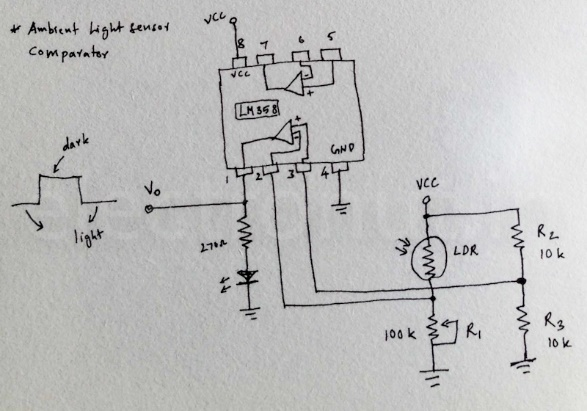 * Ambient Light sensor
Comparator
VCC
8 7 6 5
VCC
-
+
LM358
+
-
GND
1 2 3 4
dark
light
Vo
270Ω
VCC
LDR
R2
10k
100k
R1
R3
10k